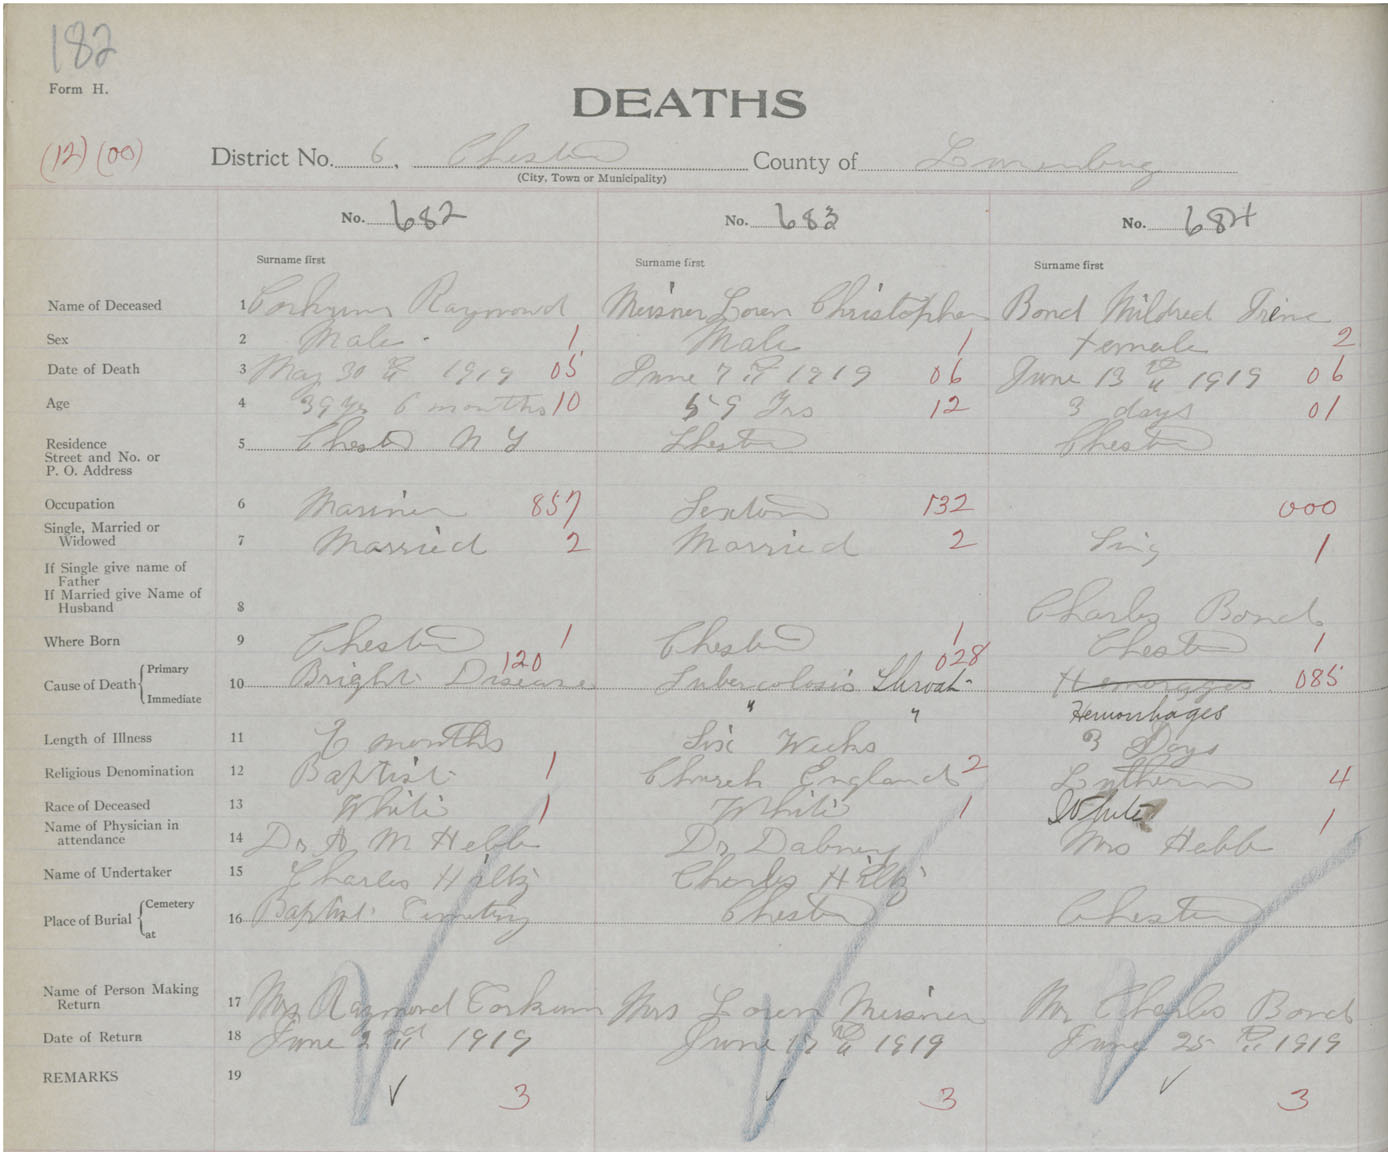 182
Form H.
DEATHS
(12) (00) District No. 6, Chester County of Lunenburg
(City, Town or Municipality)
No. 682 No. 683 No. 684
Surname first Surname first Surname first
Name of Deceased 1 Corkum Raymond Meisner Loren Christopher Bond Mildred Irene
Sex 2 Male 1 Male 1 Female 2
Date of Death 3 May 30th 1919 05 June 7th 1919 06 June 13th 1919 06
Age 4 39 yrs 6 months 10 59 Yrs 12 3 days 01
Residence
Street and No. or
P. O. Address 5 Chester N S Chester Chester
Occupation 6 Mariner 857 Sexton 132 000
Single, Married or
Widowed 7 Married 2 Married 2 Sing 1
If Single give name of
Father
If Married give Name of
Husband 8 Charles Bond
Where Born 9 Chester 1 Chester 1 Chester 1
Cause of Death { Primary
Immediate 10 Bright Disease 120 Tubercolosis Throat 028 Hemorages 085
" " Hemorrhages
Length of Illness 11 6 months Six Weeks 3 Days
Religious Denomination 12 Baptist 1 Church England 2 Lutheran 4
Race of Deceased 13 White 1 White 1 White 1
Name of Physician in
attendance 14 Dr A M Hebb Dr Dabney Mrs Hebb
Name of Undertaker 15 Charles Hiltz Charles Hiltz
Place of Burial { Cemetery
at 16 Baptist Cemetery Chester Chester
Name of Person Making
Return 17 Mrs Raymond Corkum Mrs Loren Meisner Mr Charles Bond
Date of Return 18 June 2nd 1919 June 17th 1919 June 25th 1919
REMARKS 19
✓ 3 ✓ 3 ✓ 3